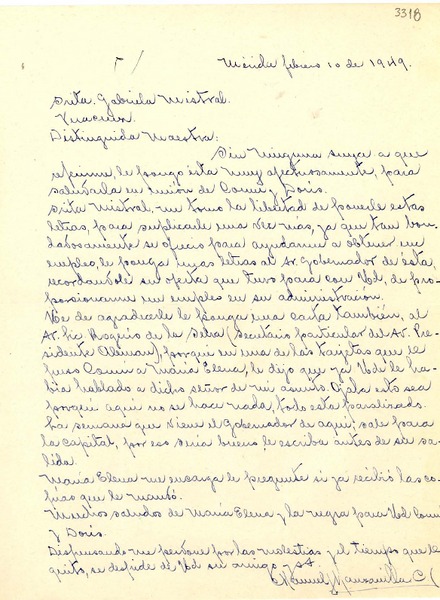 3318
Mérida febrero 10 de 1949.
Srita. Gabriela Mistral.
Veracruz.
Distinguida Maestra:
Sin ninguna suya a que
referirme, le pongo ésta muy afectuosamente, para
saludarla en unión de Connie y Doris.
Srita Mistral, me tomo la libertad de ponerle estas
letras, para suplicarle una vez más, ya que tan bon-
dadosamente se ofreció para ayudarme a obtener un
empleo, le ponga unas letras al Sr. Gobernador de ésta,
recordándole su oferta que tuvo para con Ud, de pro-
porsionarme un empleo en su administración.
Voy de agradecerle le ponga una carta también, al
Sr. Lic. Rogerio de la Selva (Secretario particular del Sr. Pre-
sidente Alemán), porque en una de las tarjetas que le
puso Connie a María Elena, le dijo que ya Ud le ha-
bía hablado a dicho señor de mi asunto. Ojalá esto sea
porque aquí no se hace nada, todo está paralizado.
La semana que viene el gobernador de aquí, sale para
la capital, por eso sería bueno le escriba ántes de su sa-
lida.
María Elena me encarga le pregunte si ya recibió las co-
pias que le mandó.
Muchos saludos de María Elena y la negra para Ud Conni
y Doris.
Dispensando me perdone por las molestias y el tiempo que le
quito, se despide de Ud su amigo y S.
Manuel J Manzanilla C